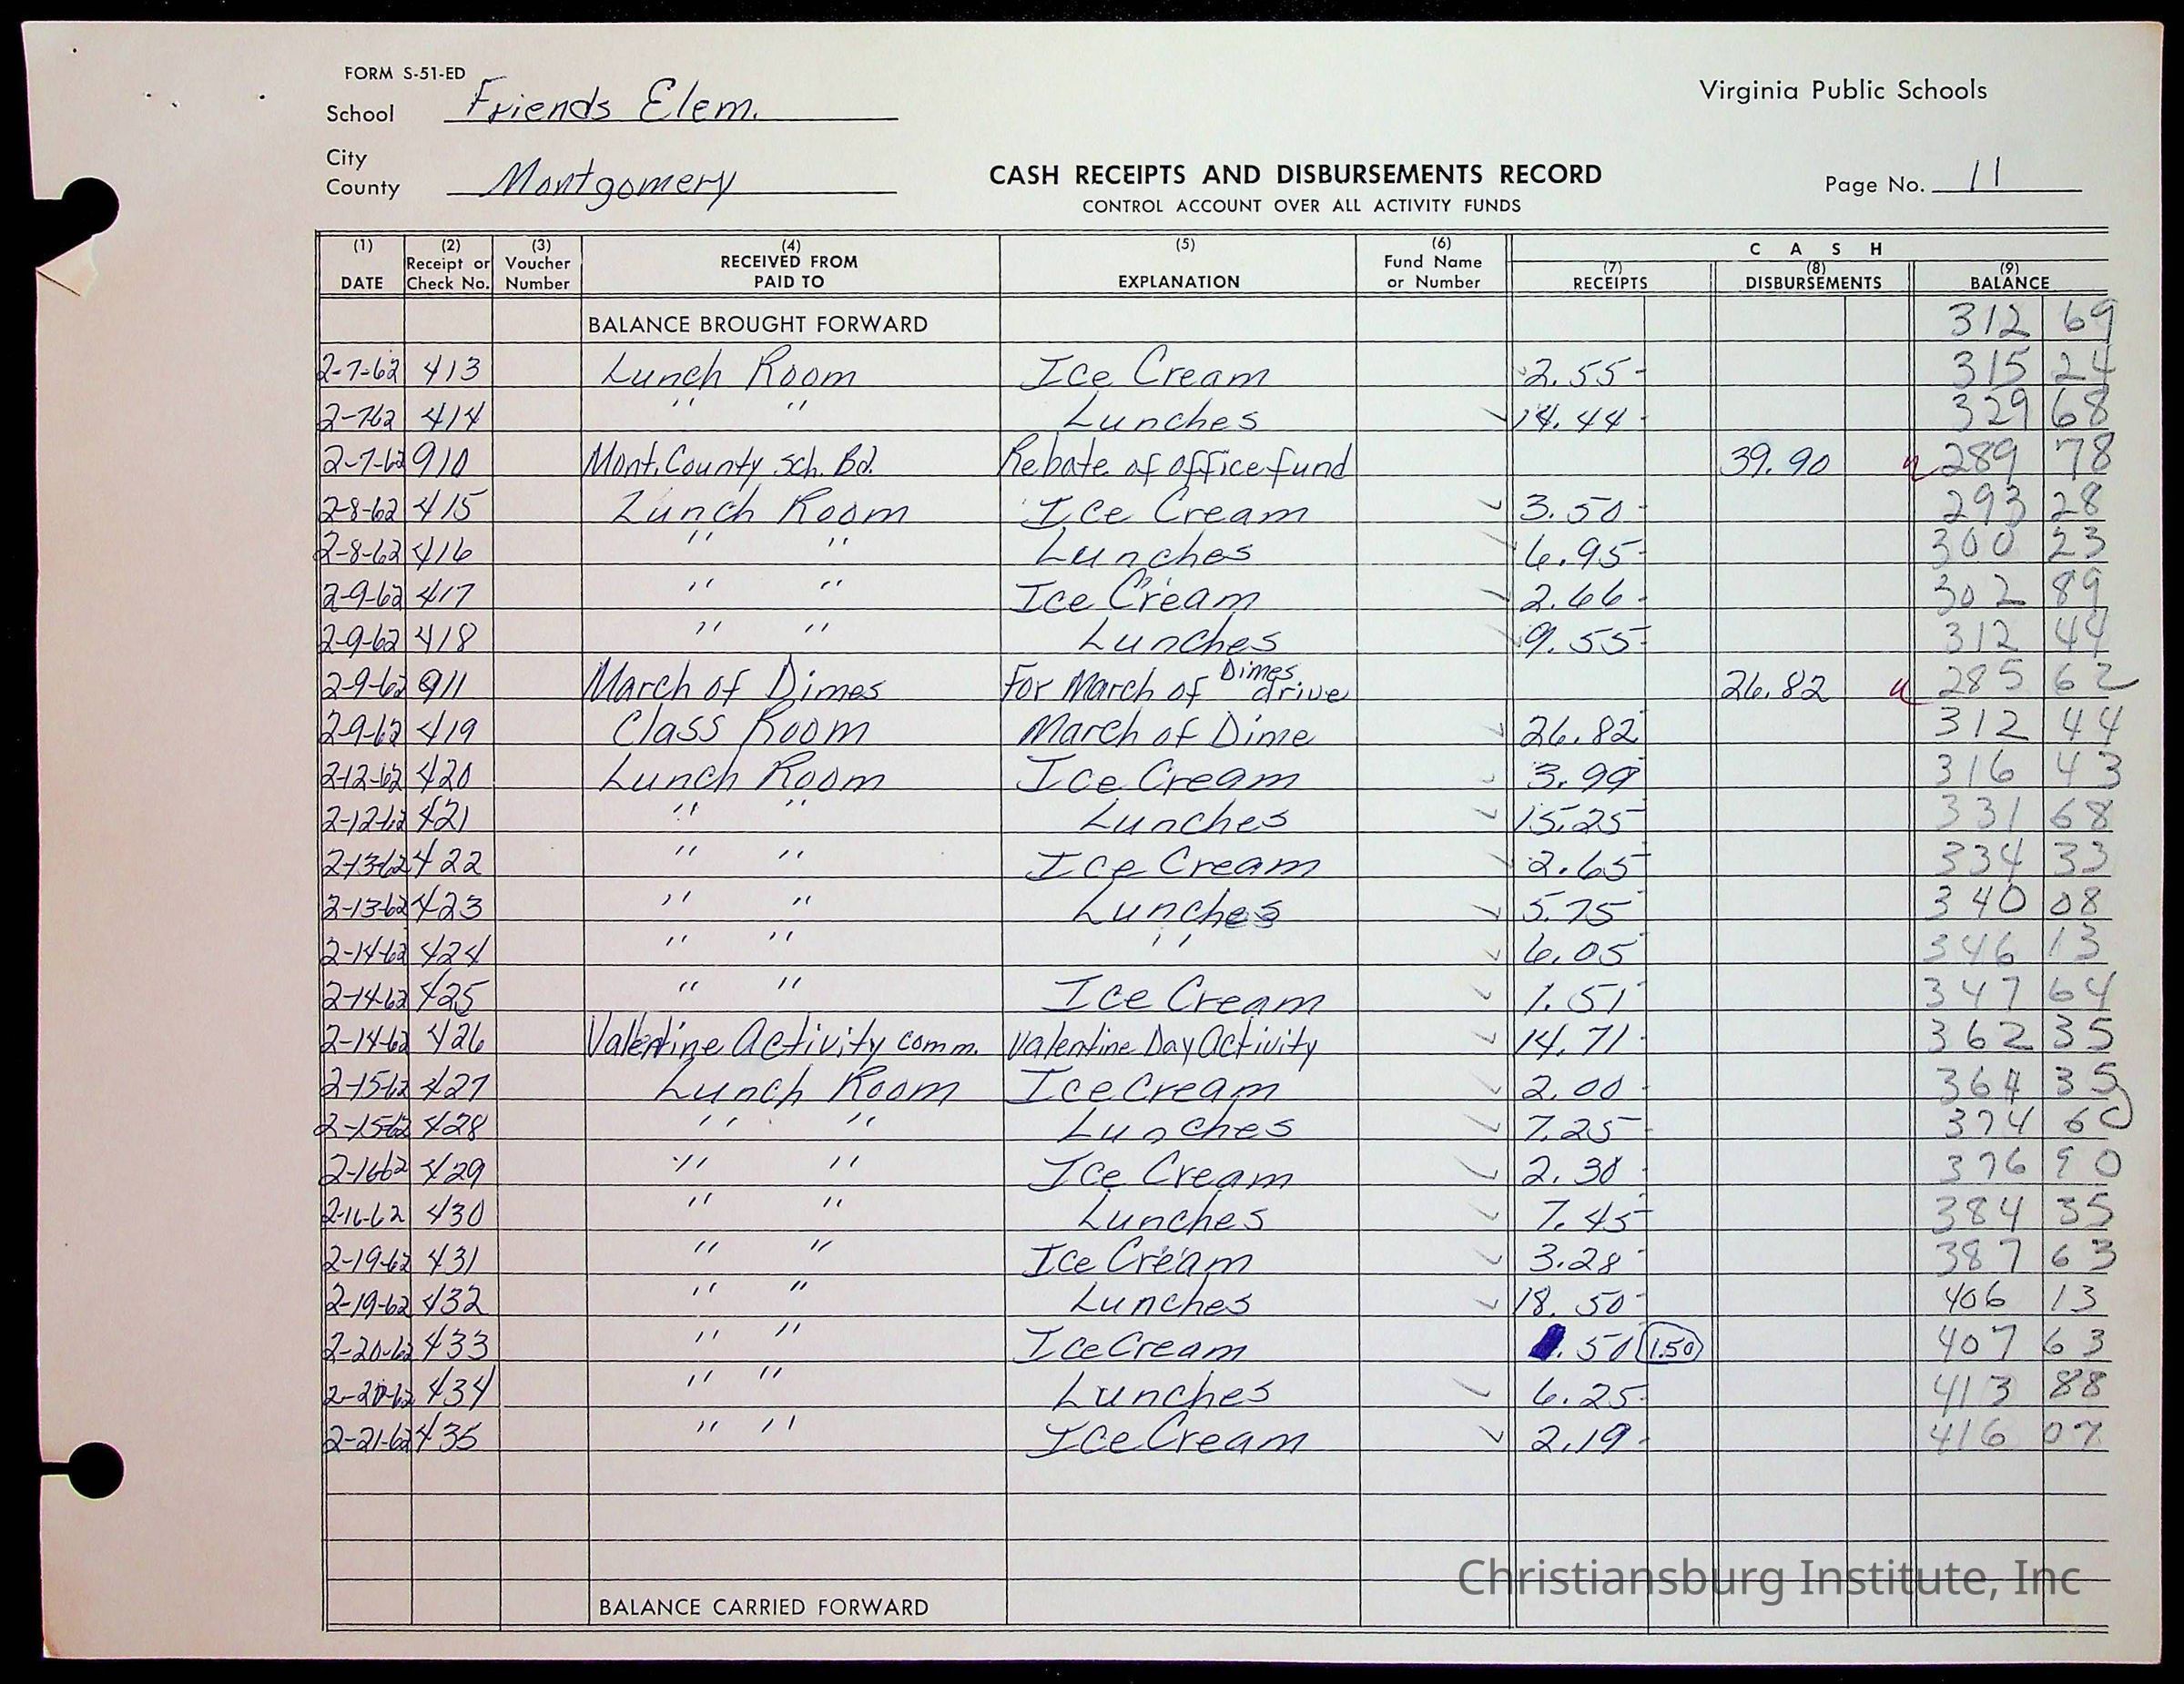 FORM S-51-ED
Virginia Public Schools
School Friends Elem.
City
County Montgomery
CASH RECEIPTS AND DISBURSEMENTS RECORD
CONTROL ACCOUNT OVER ALL ACTIVITY FUNDS
Page No. 11
(1) DATE (2) Receipt or Check No. (3) Voucher Number (4) RECEIVED FROM PAID TO (5) EXPLANATION (6) Fund Name or Number CASH (7) RECEIPTS (8) DISBURSEMENTS (9) BALANCE
BALANCE BROUGHT FORWARD 312 69
2-7-62 413 Lunch Room Ice Cream 2.55 315 24
2-7-62 414 " " Lunches 14.44 329 68
2-7-62 910 Mont. County Sch. Bd. Rebate of office fund 39.90 289 78
2-8-62 415 Lunch Room Ice Cream 3.50 293 28
2-8-62 416 " " Lunches 6.95 300 23
2-9-62 417 " " Ice Cream 2.66 302 89
2-9-62 418 " " Lunches 9.55 312 44
2-9-62 911 March of Dimes For March of Dimes drive 26.82 285 62
2-9-62 419 Class Room March of Dime 26.82 312 44
2-12-62 420 Lunch Room Ice Cream 3.99 316 43
2-12-62 421 " " Lunches 15.25 331 68
2-13-62 422 " " Ice Cream 2.65 334 33
2-13-62 423 " " Lunches 5.75 340 08
2-14-62 424 " " " 6.05 346 13
2-14-62 425 " " Ice Cream 1.51 347 64
2-14-62 426 Valentine Activity comm. Valentine Day Activity 14.71 362 35
2-15-62 427 Lunch Room Ice Cream 2.00 364 35
2-15-62 428 " " Lunches 7.25 374 60
2-16-62 429 " " Ice Cream 2.30 376 90
2-16-62 430 " " Lunches 7.45 384 35
2-19-62 431 " " Ice Cream 3.28 387 63
2-19-62 432 " " Lunches 18.50 406 13
2-20-62 433 " " Ice Cream .50 1.50 407 63
2-20-62 434 " " Lunches 6.25 413 88
2-21-62 435 " " Ice Cream 2.19 416 07
BALANCE CARRIED FORWARD
Christiansburg Institute, Inc